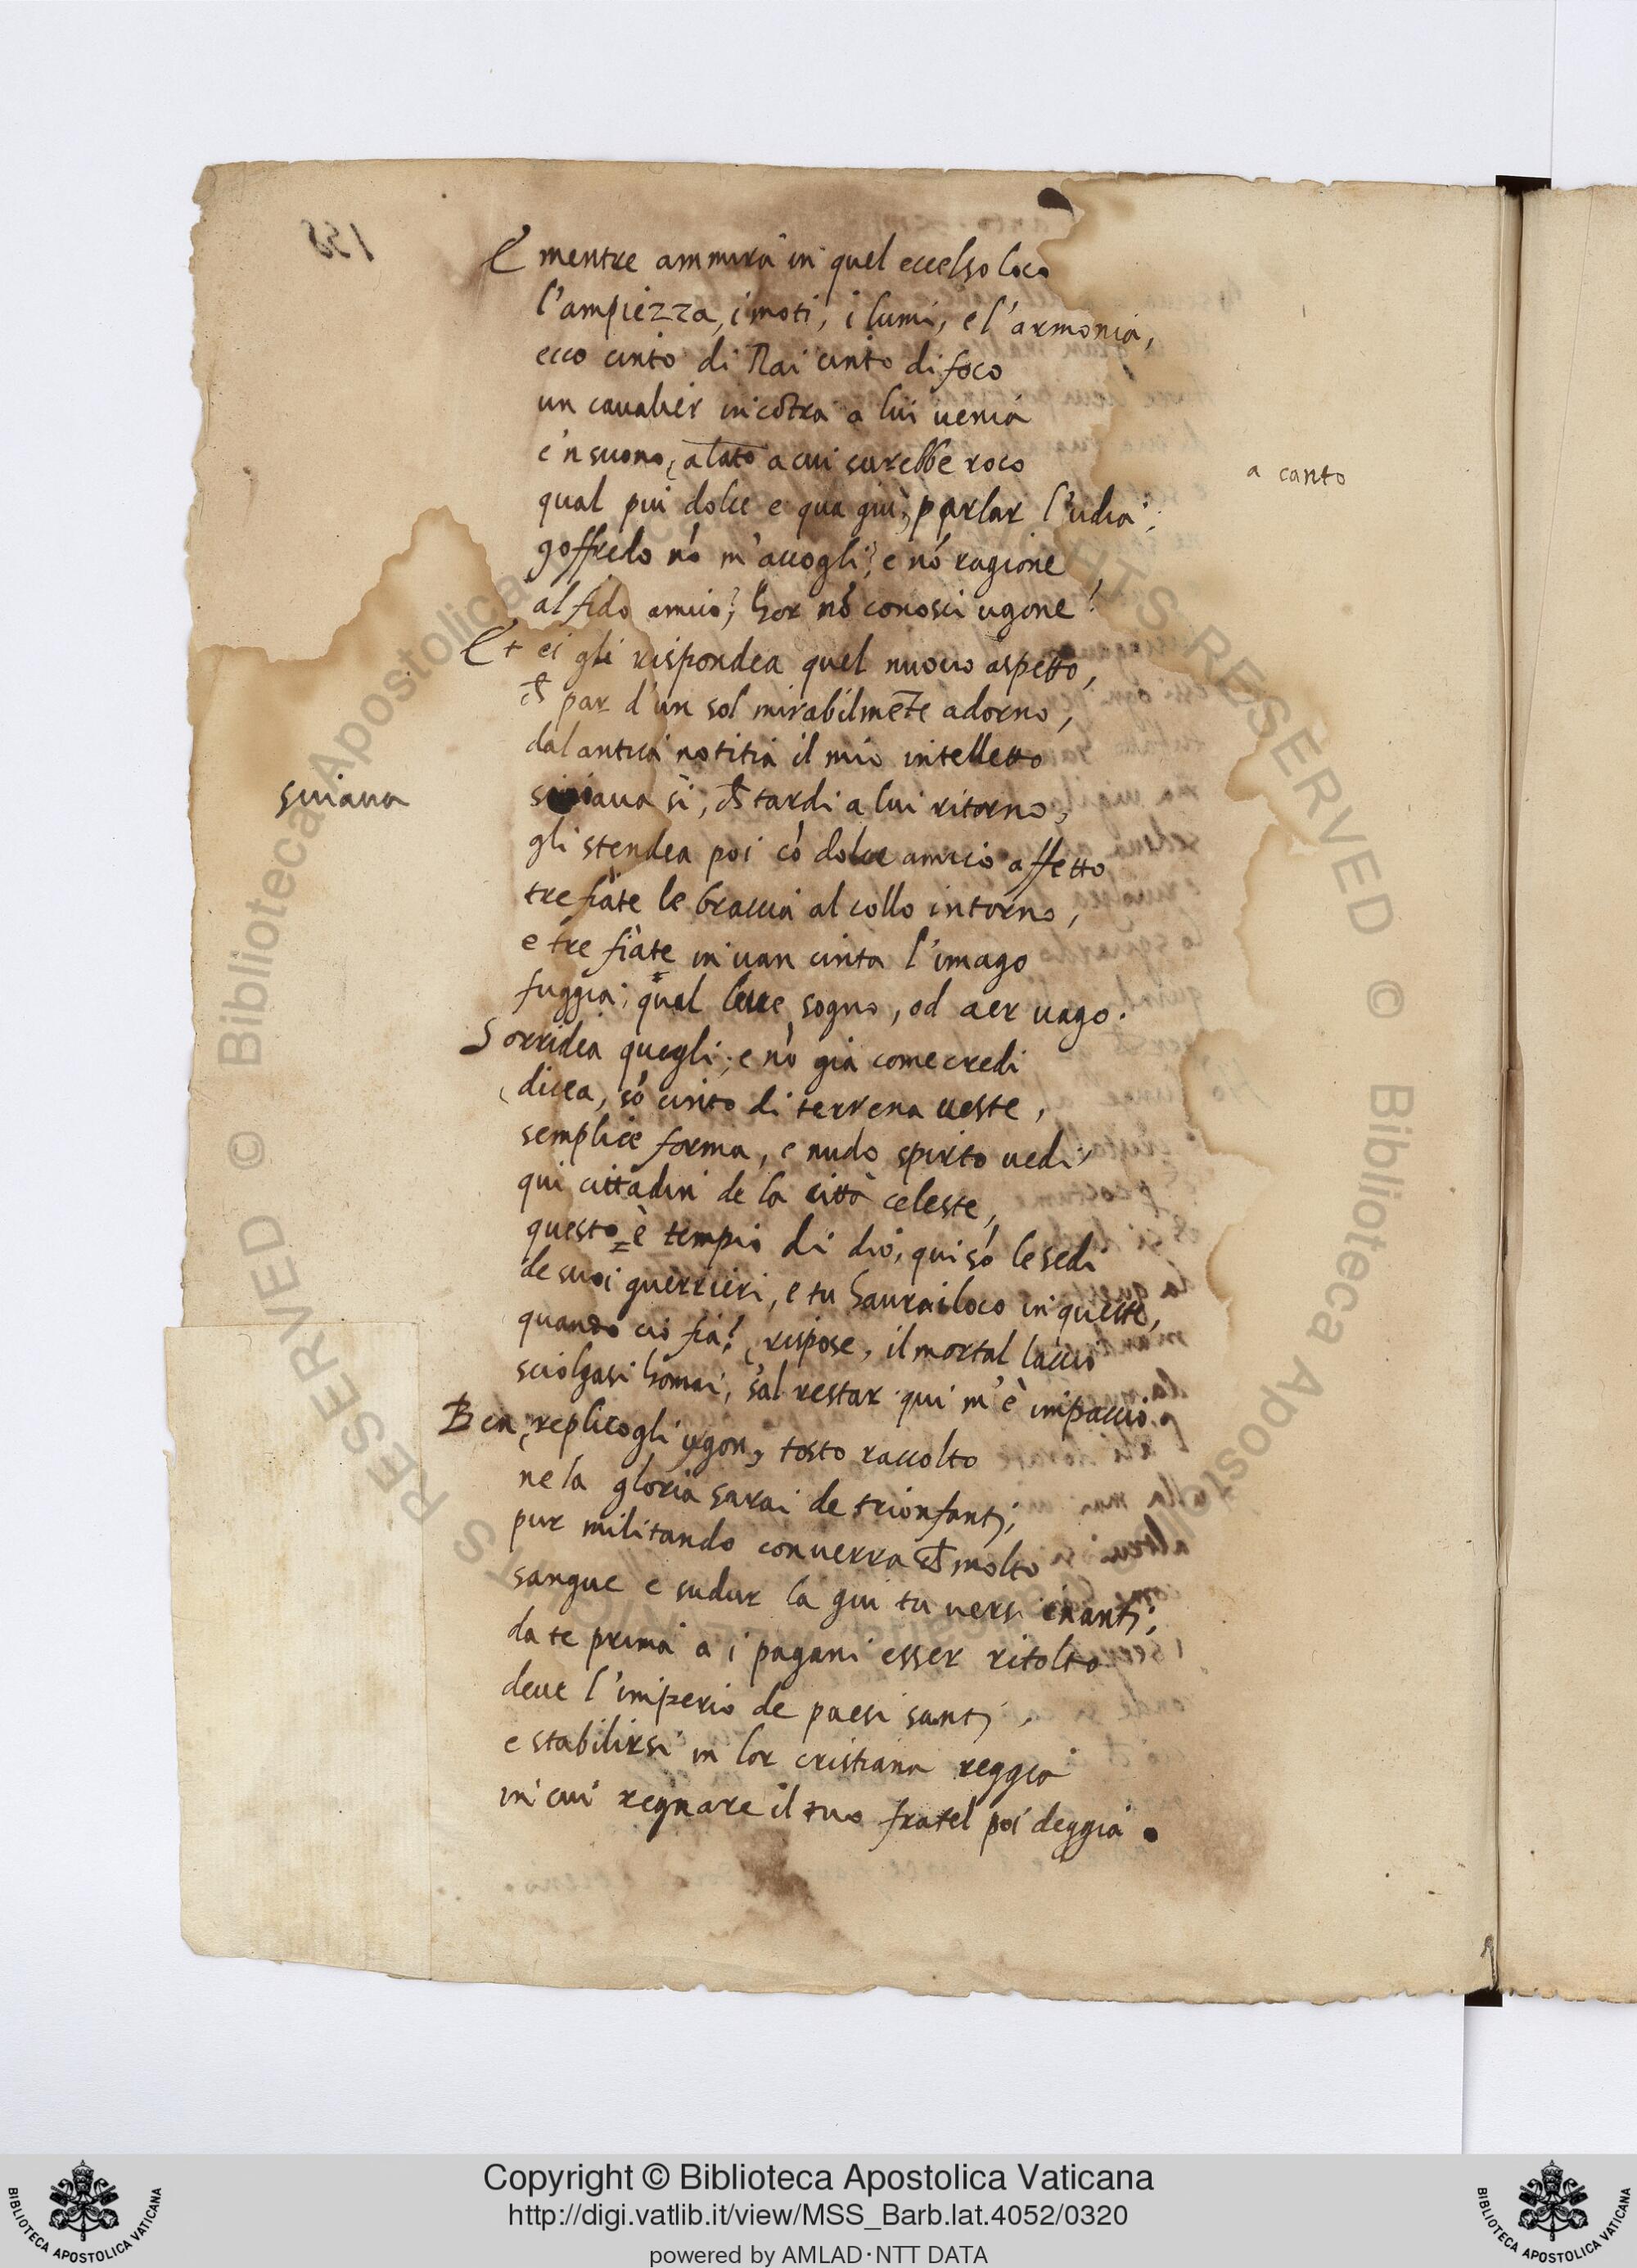 158
E mentre ammira in quel eccelso loco
l'ampiezza, i moti, i lumi, e l'armonia,
ecco cinto di Rai cinto di foco
un cavalier incõtra a lui uenia
e 'n suono, a lato a cui sarebbe roco
a canto
qual piu dolce e qua giu, parlar l'udia:
goffredo nõ m'accogli? e nõ ragione
al fido amico? hor nõ conosci ugone?
Et ei gli rispondea quel nuouo aspetto,
ch par d'un sol mirabilmẽte adorno,
dal antica notitia il mio intelletto
suiaua
suiaua sì, ch tardi a lui ritorno,
gli stendea poi cõ dolce amico affetto
tre fiate le braccia al collo intorno,
e tre fiate in uan cinta l'imago
fuggia, qual leue sogno, od aer uago.
Sorridea quegli, e nõ già come credi
(dicea, sõ cinto di terrena ueste,
semplice forma, e nudo spirto uedi
qui cittadin de la città celeste,
questo è tempio di dio, qui sõ le sedi
de suoi guerrieri, e tu haurai loco in queste,
quando ciò fia? (rispose, il mortal laccio
sciolgasi homai, s'al restar qui m'è impaccio.
Ben (replicogli ugon, tosto raccolto
ne la gloria sarai de trionfanti;
pur militando conuerra ch molto
sangue e sudor la giu tu uersi inanti;
da te prima a i pagani esser ritolto
deue l'imperio de paesi santi,
e stabilirsi in lor cristiana reggia
in cui regnare il tuo fratel poi deggia.
RIGHTS RESERVED © Biblioteca Apostolica Vaticana
Copyright © Biblioteca Apostolica Vaticana
http://digi.vatlib.it/view/MSS_Barb.lat.4052/0320
powered by AMLAD·NTT DATA
BIBLIOTECA APOSTOLICA VATICANA
BIBLIOTECA APOSTOLICA VATICANA